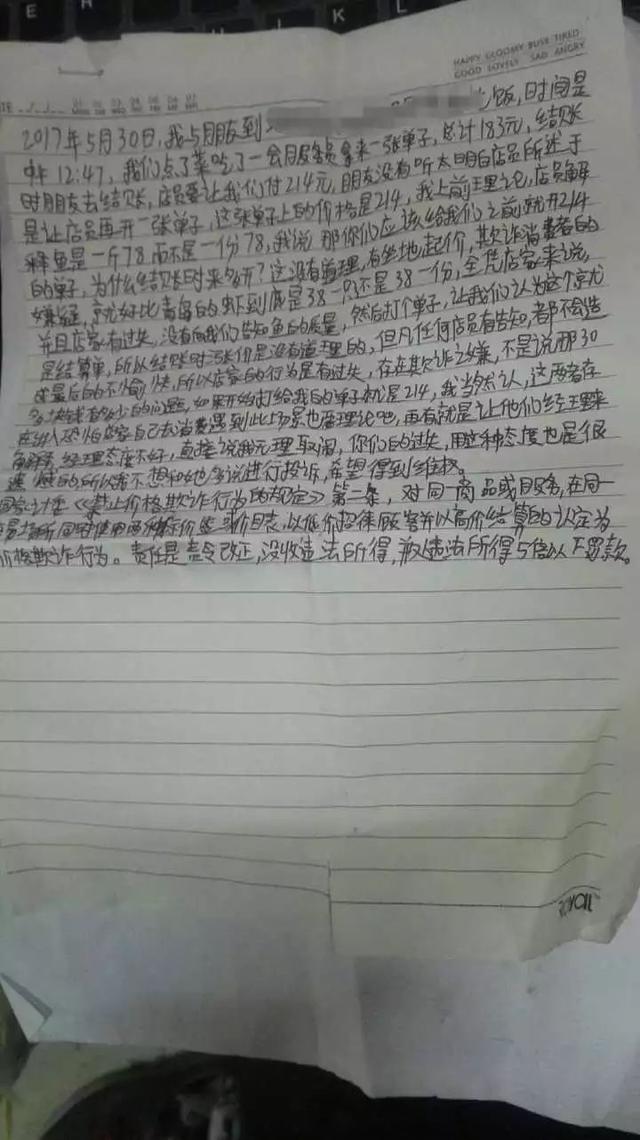 HAPPY GLOOMY BUSY TIRED
GOOD LOVELY SAD ANGRY
2017年5月30日,我与朋友到 吃饭,时间是
中午12:47,我们点了菜吃了一会服务员拿来一张单子,总计183元,结账
时朋友去结账,店员要让我们付214元,朋友没有听太明白店员所述于
是让店员再开一张单子,这张单子上的价格是214,我上前理论,店员解
释鱼是一斤78而不是一份78,我说那你们应该给我们之前就开214
的单子,为什么结账时来多开?这没有道理,有坐地起价,欺诈消费者的
嫌疑,就好比青岛的虾到底是38一只还是38一份,全凭店家来说,
并且店家有过失,没有向我们告知鱼的质量,然后打个单子,让我们认为这个就
是结算单,所以结账时涨价是没有道理的,但凡任何店员有告知,都不会造
成最后的不愉快,所以店家的行为是有过失,存在欺诈之嫌,不是说那30
多块钱有多少的问题,如果开始打给我的单子就是214,我当然认,这两者存
在 恐怕店家自己去消费遇到此场景也要理论吧,再有就是让他们经理来
解释,经理态度不好,直接说我无理取闹,你们的过失,用这种态度也是很
的,所以我不想和她多说进行投诉,希望得到维权。
国家计委《禁止价格欺诈行为的规定》第二条,对同一商品或服务,在同一
交易场所同时使用两种标价签或价目表,以低价招徕顾客并以高价结算的认定为
价格欺诈行为。责任是责令改正,没收违法所得,并以违法所得5倍以下罚款。